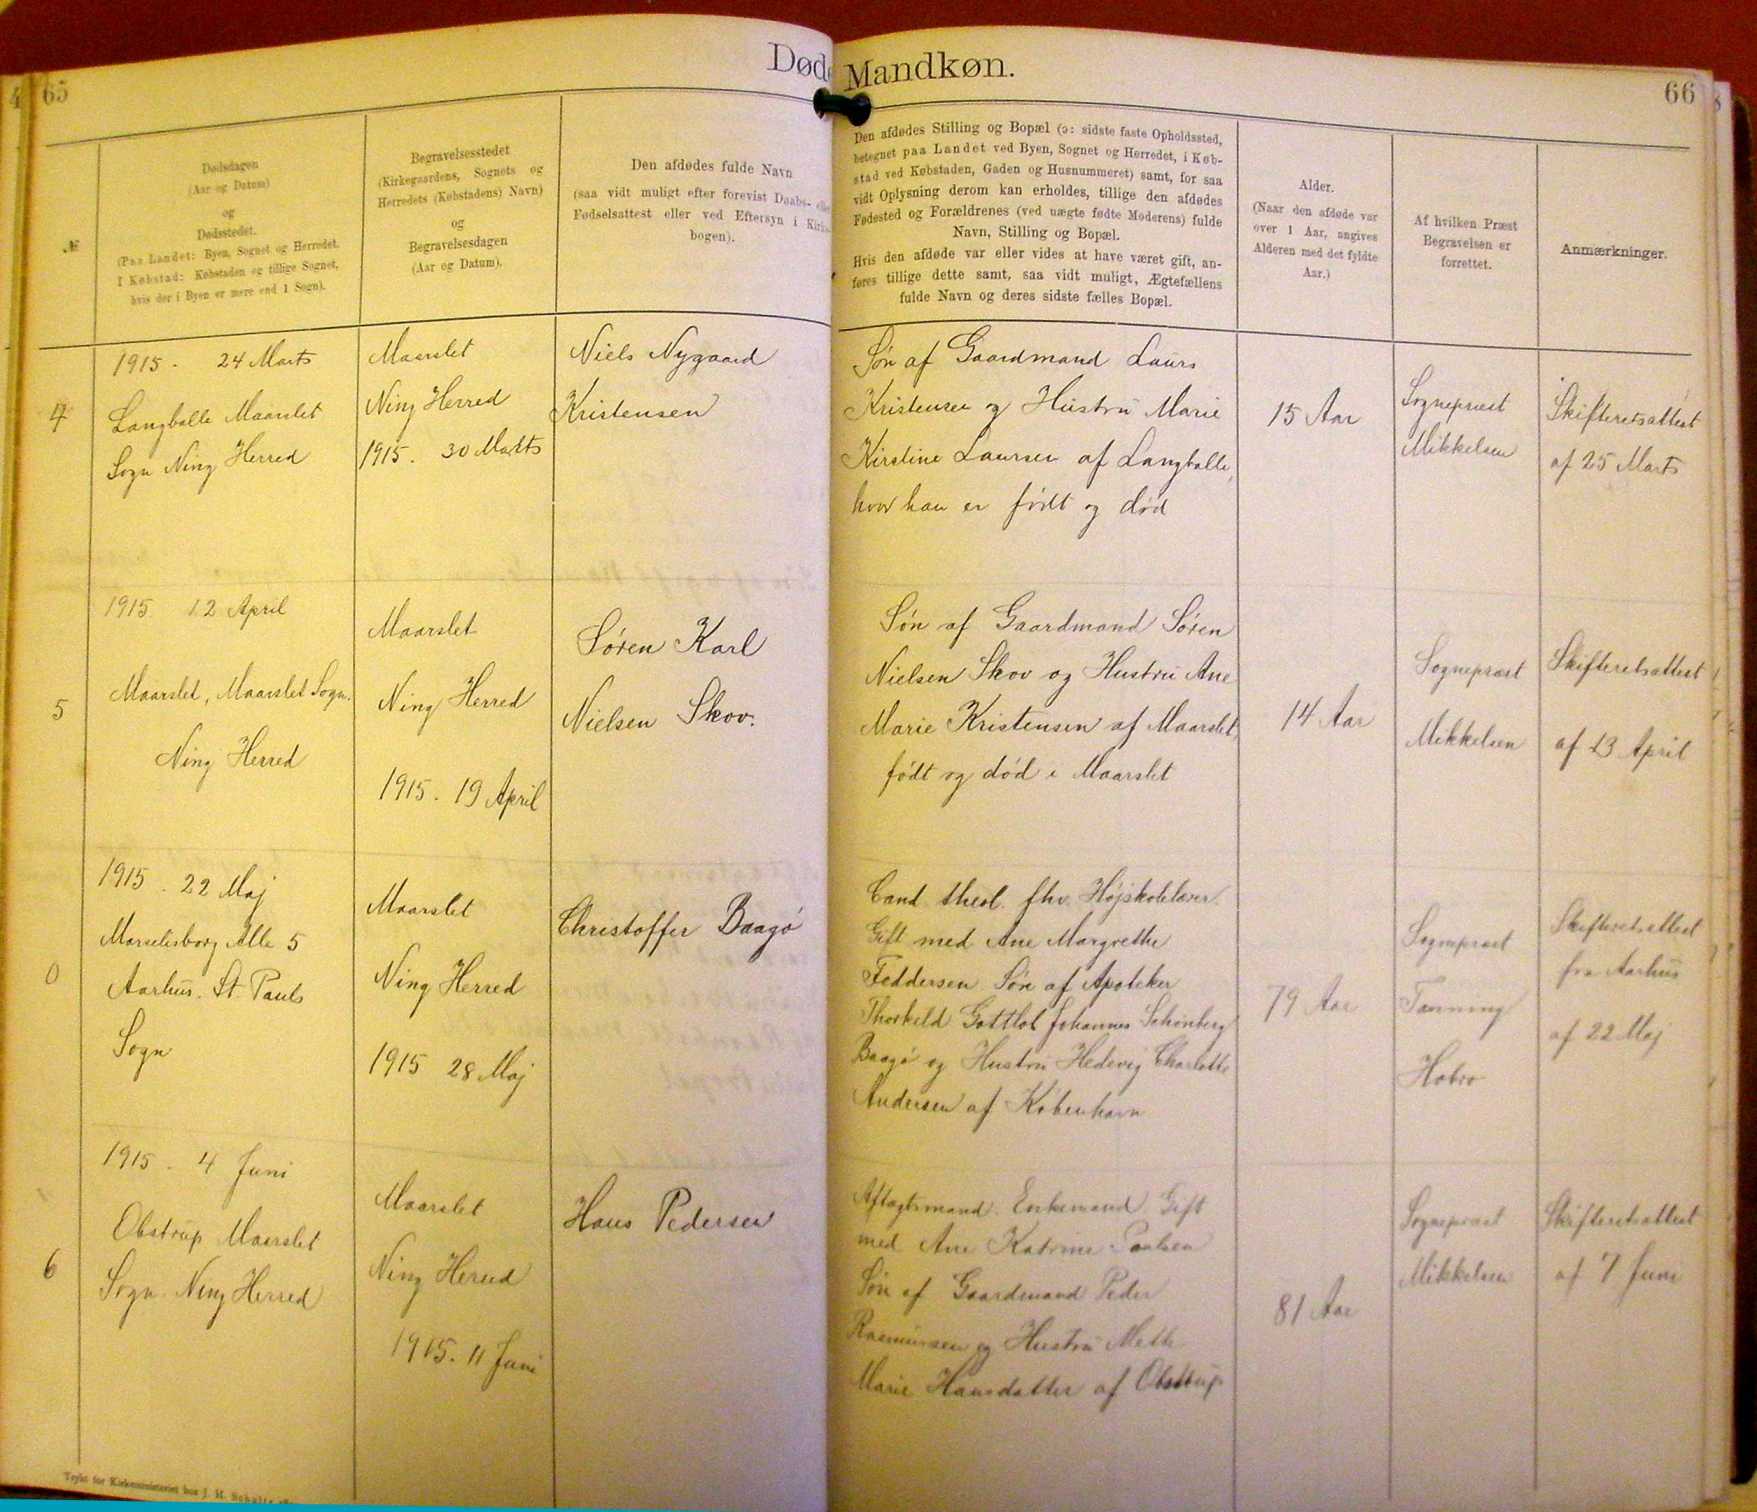 Døde
Mandkøn.
4
65
66
№
Dødsdagen
(Aar og Datum)
og
Dødsstedet.
(Paa Landet: Byen, Sognet og Herredet.
I Købstad: Købstaden og tillige Sognet,
hvis der i Byen er mere end 1 Sogn).
Begravelsesstedet
(Kirkegaardens, Sognets og
Herredets (Købstadens) Navn)
og
Begravelsesdagen
(Aar og Datum).
Den afdødes fulde Navn
(saa vidt muligt efter forevist Daabs- eller
Fødselsattest eller ved Eftersyn i Kirke-
bogen).
Den afdødes Stilling og Bopæl (ɔ: sidste faste Opholdssted,
betegnet paa Landet ved Byen, Sognet og Herredet, i Køb-
stad ved Købstaden, Gaden og Husnummeret) samt, for saa
vidt Oplysning derom kan erholdes, tillige den afdødes
Fødested og Forældrenes (ved uægte fødte Moderens) fulde
Navn, Stilling og Bopæl.
Hvis den afdøde var eller vides at have været gift, an-
føres tillige dette samt, saa vidt muligt, Ægtefællens
fulde Navn og deres sidste fælles Bopæl.
Alder.
(Naar den afdøde var
over 1 Aar, angives
Alderen med det fyldte
Aar.)
Af hvilken Præst
Begravelsen er
forrettet.
Anmærkninger.
4
1915. 24 Marts
Langballe Maarslet
Sogn Ning Herred
Maarslet
Ning Herred
1915. 30 Marts
Niels Nygaard
Kristensen
Søn af Gaardmand Laurs
Kristensen og Hustru Marie
Kirstine Laursen af Langballe,
hvor han er født og død
15 Aar
Sognepræst
Mikkelsen
Skifteretsattest
af 25 Marts
5
1915 12 April
Maarslet, Maarslet Sogn.
Ning Herred
Maarslet
Ning Herred
1915. 19 April
Søren Karl
Nielsen Skov.
Søn af Gaardmand Søren
Nielsen Skov og Hustru Ane
Marie Kristensen af Maarslet,
født og død i Maarslet
14 Aar
Sognepræst
Mikkelsen
Skifteretsattest
af 13 April
0
1915. 22 Maj
Marselisborg Alle 5
Aarhus. St. Pauls
Sogn
Maarslet
Ning Herred
1915 28 Maj
Christoffer Baagø
Cand. theol. fhv. Højskolelærer.
Gift med Ane Margrethe
Feddersen. Søn af Apoteker
Thorkild Gottlob Johannes Schønberg
Baagø og Hustru Hedevig Charlotte
Andersen af København
79 Aar
Sognepræst
Hobro
Skifteretsattest
fra Aarhus
af 22 Maj
6
1915. 4 Juni
Obstrup Maarslet
Sogn. Ning Herred
Maarslet
Ning Herred
1915. 11 Juni
Hans Pedersen
Aftægtsmand. Enkemand. Gift
med Ane Katrine Poulsen
Søn af Gaardmand Peder
Rasmussen og Hustru Mette
Marie Hansdatter af Obstrup
81 Aar
Sognepræst
Mikkelsen
Skifteretsattest
af 7 Juni
Trykt for Kirkeministeriet hos J. H. Schultz